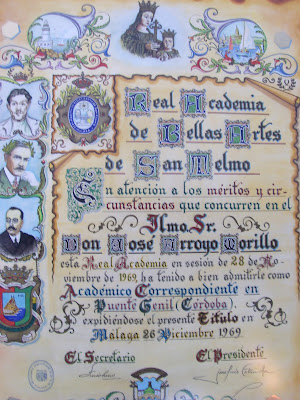 Real Academia
de Bellas Artes
de San Telmo
En atención a los méritos y cir-
cunstancias que concurren en el
Ilmo. Sr.
Don José Arroyo Morillo
esta Real Academia en sesión de 28 de No-
viembre de 1969, ha tenido a bien admitirle como
Académico Correspondiente en
Puente Genil (Córdoba).
expidiéndose el presente Título en
Málaga 26 Diciembre 1969
El Secretario
El Presidente